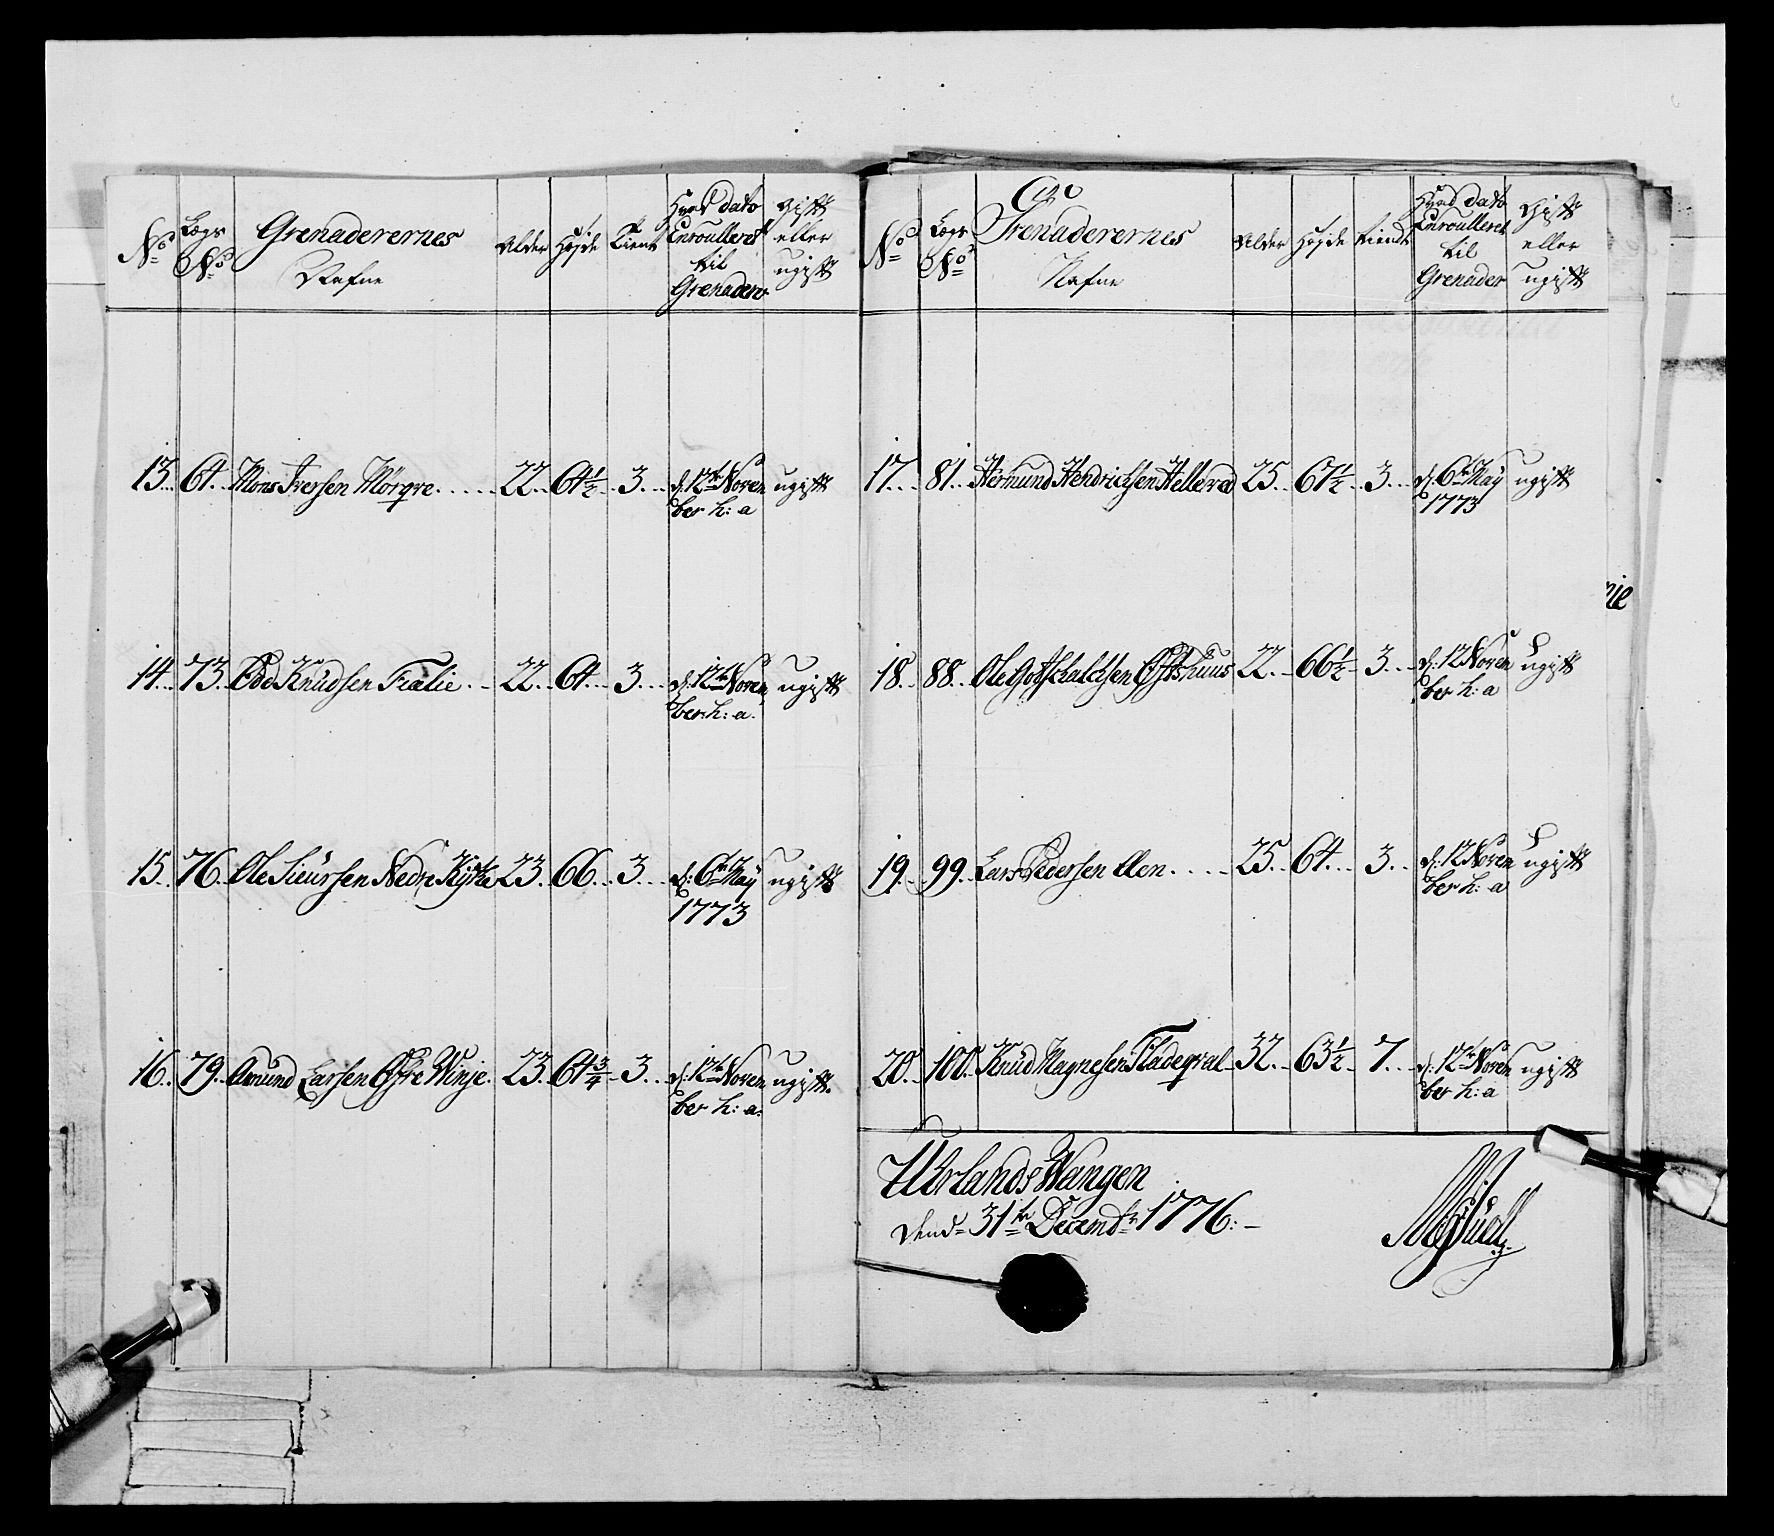 No Lægs No Grenaderernes Nafne Alder Høyde Tient Hvad dato Enroulleret til Grenaderer Gift eller ugift
13. 64. Mons Iversen Mørqre 22. 64½ 3. d: 12te Novem ugift
ber h: a
14. 73. Odd Knudsen Fretlie 22. 64. 3. d: 12te Novem ugift
ber: h: a.
15. 76. Ole Siursen Nedre 23. 66. 3. d: 6te May ugift
1773
16. 79. Amund Larsen Øfre Winje 23. 64¾ 3. d: 12te Novem ugift.
ber h: a.
No Lægs No Grenaderernes Nafne Alder Høyde tient Hvad dato Enroulleret til Grenader Gift eller ugift
17. 81. Hermund Hendrichsen Hellerød 25. 67½ 3. d: 6te May ugift
1773
18. 88. Ole Gotschalchsen 22. 66½ 3. d: 12 Novem ugift
ber h: a
19. 99. Lars Pedersen Uen 25. 64. 3. d: 12 Novem ugift
ber h: a
20. 100. Knud Magnesen 32. 63½ 7. d: 12te Novem ugift
ber h: a
Urlands Wangen
dend 31te Decembr 1776: